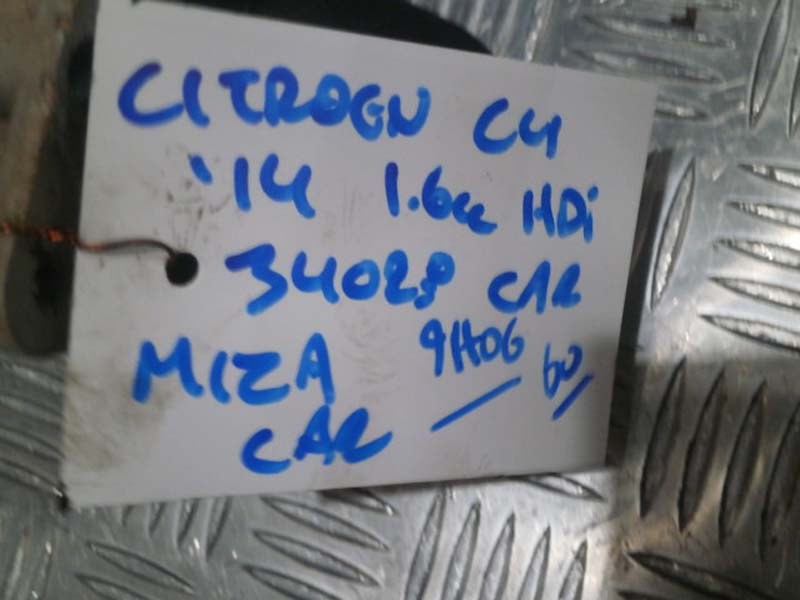 CITROEN C4
'14 1.6cc HDi
34028 CAR
MIZA 9H06 60
CAR